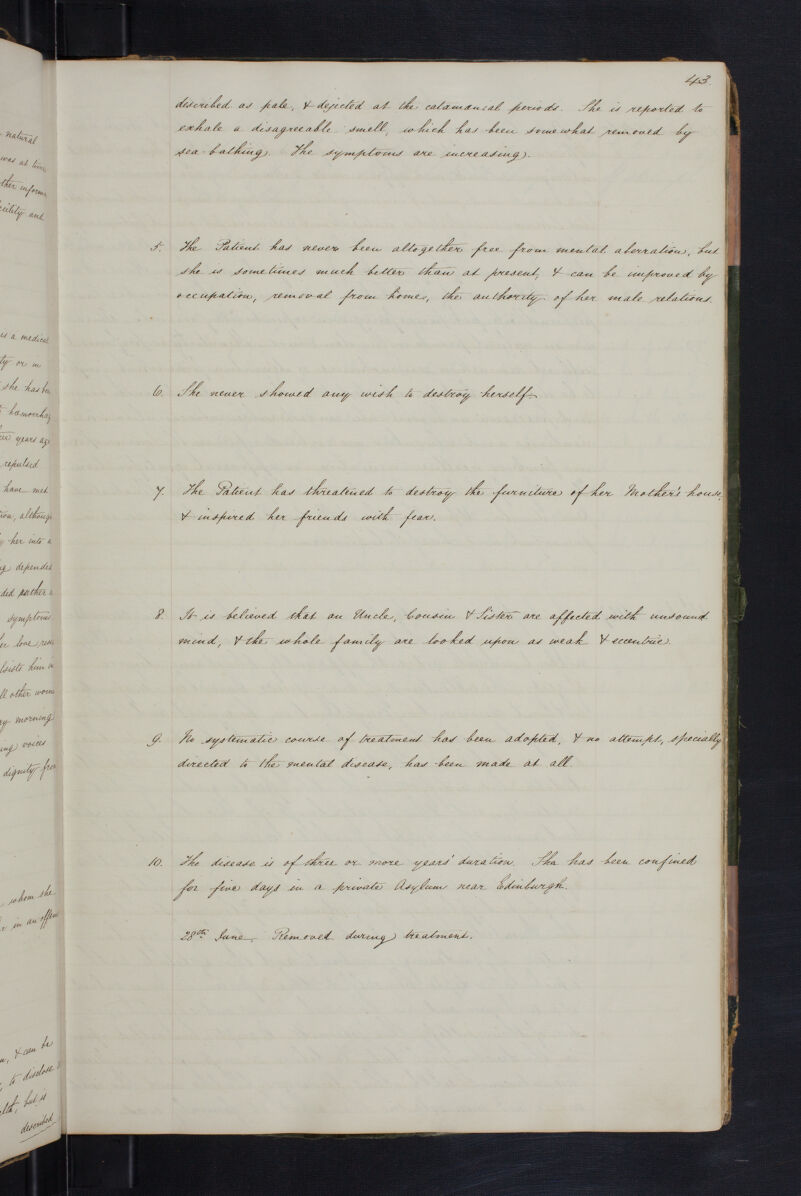 natural
was at
other
and
43.
described as pale, & dejected at the catamenial periods. She is reported to
exhale a disagreeable smell, which has been somewhat removed by
sea-bathing. The symptoms are increasing.
5. The Patient has never been altogether free from mental aberration, but
she is sometimes much better than at present, & can be improved by
occupation, removal from home, the authority of her male relations.
6. She never showed any wish to destroy herself.
7. The Patient has threatened to destroy the furniture of her Mother's house,
& inspired her friends with fear.
8. It is believed that an Uncle, Cousin & Sister are affected with unsound
mind, & the whole family are looked upon as weak & eccentric.
9. No systematic course of treatment has been adopted, & no attempt, specially
directed to the mental disease, has been made at all.
10. The disease is of three or more years' duration. Sha has been confined
for five days in a private Asylum near Edinburgh.
28th June. Removed during treatment.
is a medical
or in
she has
years
repulsed
have met
her into a
symptoms
him
all other
morning
voices
dignity
whom she
in an
& can be
to disclose
but is
described